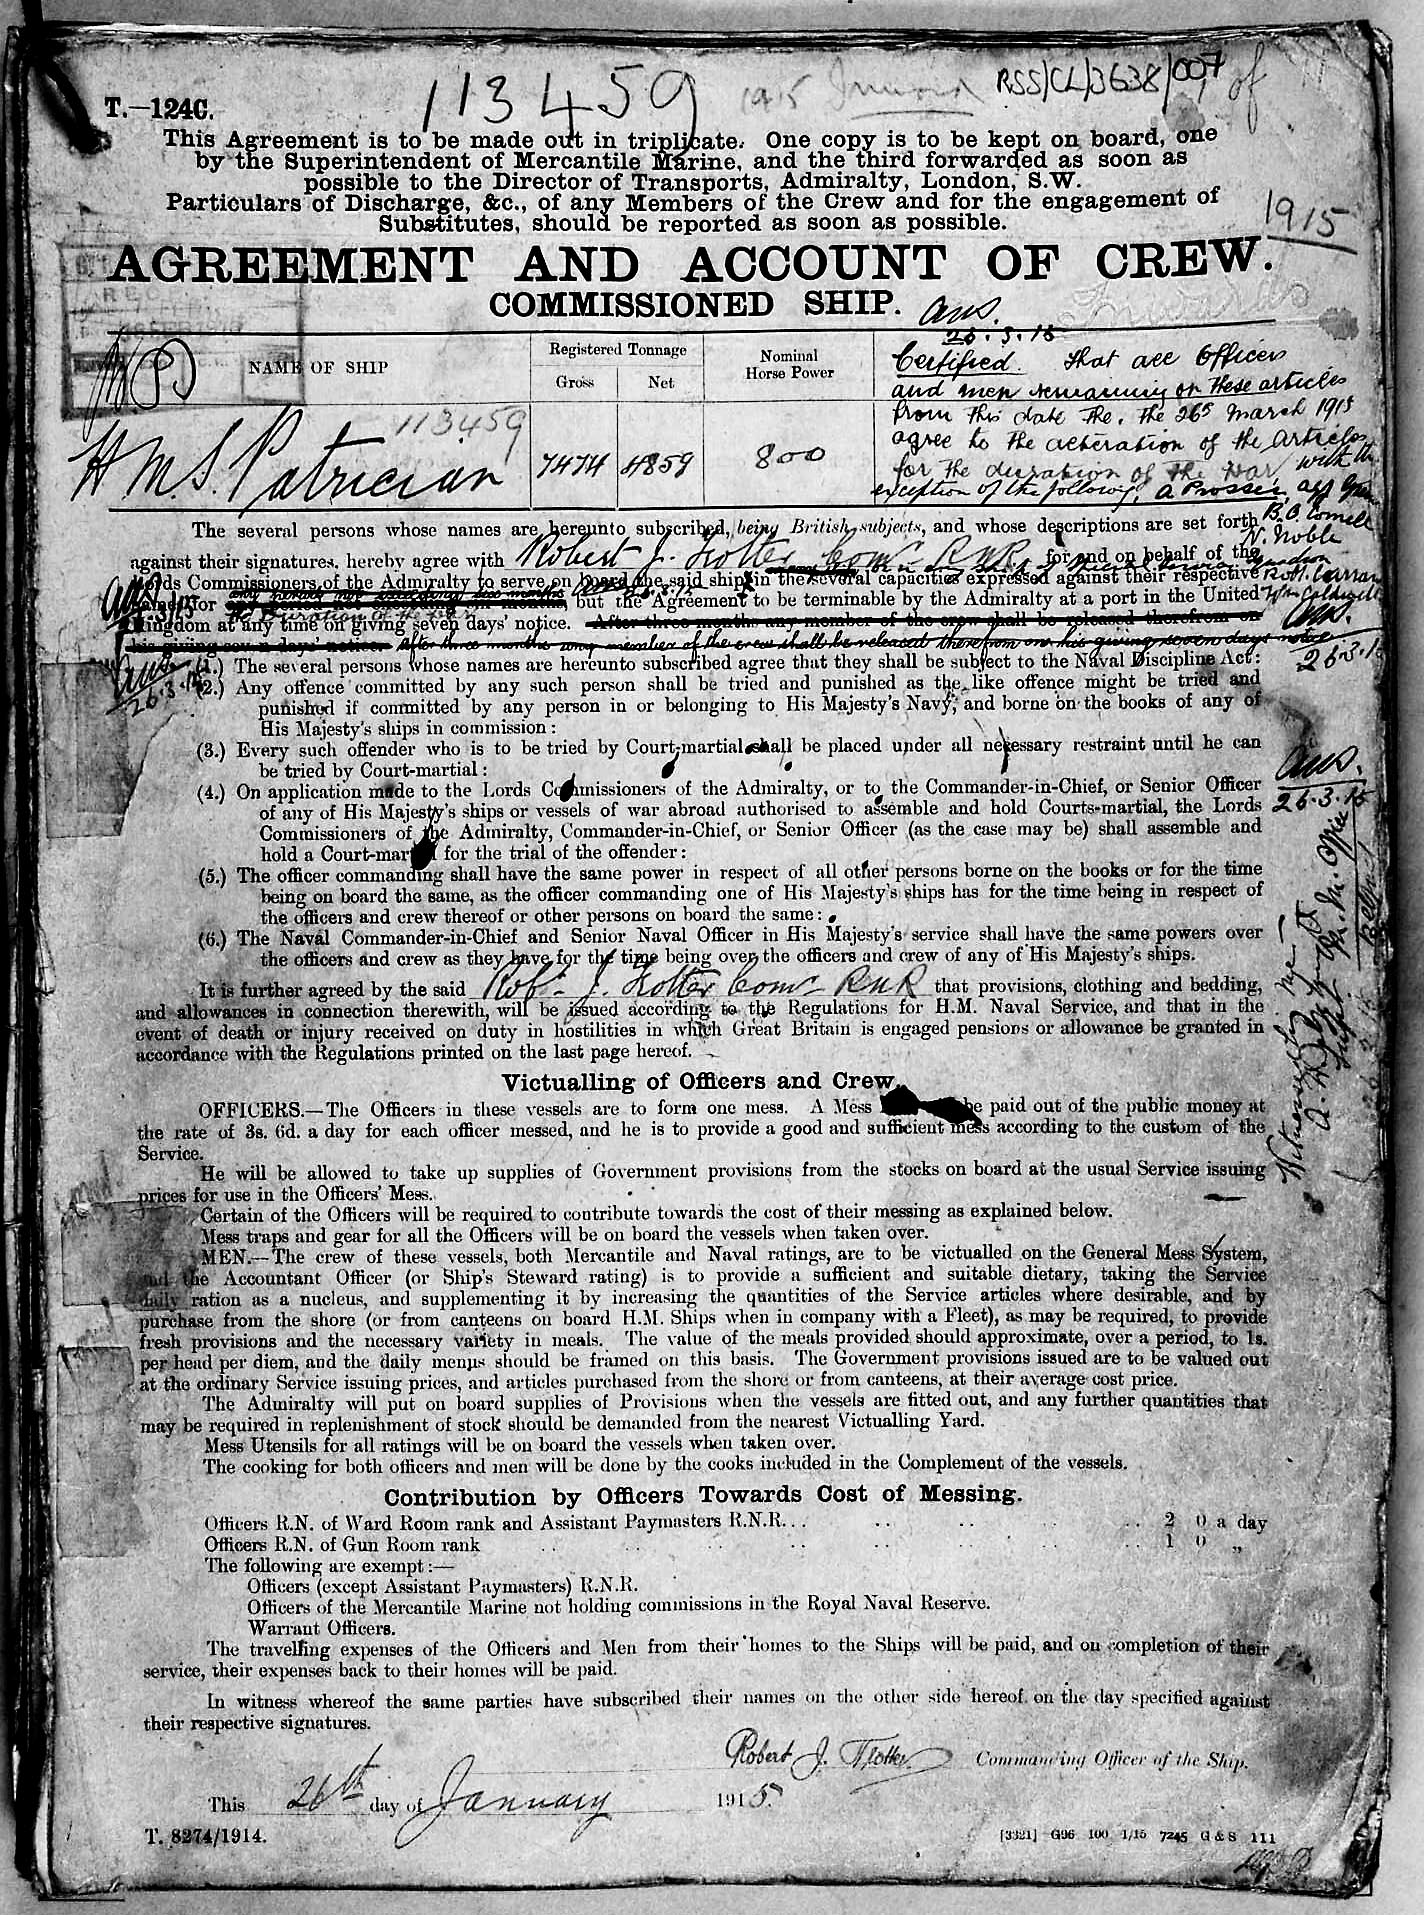 113459
1915
RSS/CL/3638/007
of
T.—124C.
This Agreement is to be made out in triplicate. One copy is to be kept on board, one
by the Superintendent of Mercantile Marine, and the third forwarded as soon as
possible to the Director of Transports, Admiralty, London, S.W.
Particulars of Discharge, &c., of any Members of the Crew and for the engagement of
Substitutes, should be reported as soon as possible.
1915
AGREEMENT AND ACCOUNT OF CREW.
COMMISSIONED SHIP.
26.3.15
NAME OF SHIP
Registered Tonnage
Gross
Net
Nominal
Horse Power
113459
H.M.S. Patrician
7474
4859
800
Certified that all Officers
and men remaining on these articles
from this date the 26th March 1915
agree to the alteration of the Articles
for the duration of the War, with the
exception of the following, A Prosser
B. C. Cornell
N. Noble
R. H. Carran
Wm Coldwell
26.3.15
The several persons whose names are hereunto subscribed, being British subjects, and whose descriptions are set forth
against their signatures, hereby agree with Robert J. Trotter Comr RNR for and on behalf of the
Lords Commissioners of the Admiralty to serve on board the said ship in the several capacities expressed against their respective
for any period not exceeding six months, but the Agreement to be terminable by the Admiralty at a port in the United
the duration of the war
Kingdom at any time on giving seven days' notice. After three months any member of the crew shall be released therefrom on
his giving seven days' notice. After three months any member of the crew shall be released therefrom on his giving seven days notice
26.3.15
(1.) The several persons whose names are hereunto subscribed agree that they shall be subject to the Naval Discipline Act:
(2.) Any offence committed by any such person shall be tried and punished as the like offence might be tried and
punished if committed by any person in or belonging to His Majesty's Navy, and borne on the books of any of
His Majesty's ships in commission:
(3.) Every such offender who is to be tried by Court-martial shall be placed under all necessary restraint until he can
be tried by Court-martial:
(4.) On application made to the Lords Commissioners of the Admiralty, or to the Commander-in-Chief, or Senior Officer
of any of His Majesty's ships or vessels of war abroad authorised to assemble and hold Courts-martial, the Lords
Commissioners of the Admiralty, Commander-in-Chief, or Senior Officer (as the case may be) shall assemble and
hold a Court-martial for the trial of the offender:
(5.) The officer commanding shall have the same power in respect of all other persons borne on the books or for the time
being on board the same, as the officer commanding one of His Majesty's ships has for the time being in respect of
the officers and crew thereof or other persons on board the same:
(6.) The Naval Commander-in-Chief and Senior Naval Officer in His Majesty's service shall have the same powers over
the officers and crew as they have for the time being over the officers and crew of any of His Majesty's ships.
26.3.15
Witnessed by me—
It is further agreed by the said Robt. J. Trotter Comr RNR that provisions, clothing and bedding,
and allowances in connection therewith, will be issued according to the Regulations for H.M. Naval Service, and that in the
event of death or injury received on duty in hostilities in which Great Britain is engaged pensions or allowance be granted in
accordance with the Regulations printed on the last page hereof.
Victualling of Officers and Crew.
OFFICERS.—The Officers in these vessels are to form one mess. A Mess be paid out of the public money at
the rate of 3s. 6d. a day for each officer messed, and he is to provide a good and sufficient mess according to the custom of the
Service.
He will be allowed to take up supplies of Government provisions from the stocks on board at the usual Service issuing
prices for use in the Officers' Mess.
Certain of the Officers will be required to contribute towards the cost of their messing as explained below.
Mess traps and gear for all the Officers will be on board the vessels when taken over.
MEN.—The crew of these vessels, both Mercantile and Naval ratings, are to be victualled on the General Mess System,
and the Accountant Officer (or Ship's Steward rating) is to provide a sufficient and suitable dietary, taking the Service
daily ration as a nucleus, and supplementing it by increasing the quantities of the Service articles where desirable, and by
purchase from the shore (or from canteens on board H.M. Ships when in company with a Fleet), as may be required, to provide
fresh provisions and the necessary variety in meals. The value of the meals provided should approximate, over a period, to 1s.
per head per diem, and the daily menus should be framed on this basis. The Government provisions issued are to be valued out
at the ordinary Service issuing prices, and articles purchased from the shore or from canteens, at their average cost price.
The Admiralty will put on board supplies of Provisions when the vessels are fitted out, and any further quantities that
may be required in replenishment of stock should be demanded from the nearest Victualling Yard.
Mess Utensils for all ratings will be on board the vessels when taken over.
The cooking for both officers and men will be done by the cooks included in the Complement of the vessels.
Contribution by Officers Towards Cost of Messing.
Officers R.N. of Ward Room rank and Assistant Paymasters R.N.R. .. .. .. .. 2 0 a day
Officers R.N. of Gun Room rank .. .. .. .. .. .. .. 1 0 „
The following are exempt:—
Officers (except Assistant Paymasters) R.N.R.
Officers of the Mercantile Marine not holding commissions in the Royal Naval Reserve.
Warrant Officers.
The travelling expenses of the Officers and Men from their homes to the Ships will be paid, and on completion of their
service, their expenses back to their homes will be paid.
In witness whereof the same parties have subscribed their names on the other side hereof on the day specified against
their respective signatures.
Robert J. Trotter Commanding Officer of the Ship.
This 26th day of January 1915.
T. 8274/1914.
[3321] G96 100 1/15 7245 G & S 111